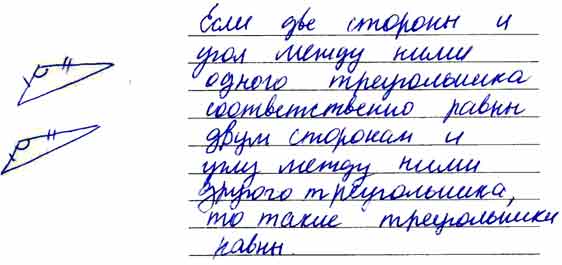 Если две стороны и
угол между ними
одного треугольника
соответственно равны
двум сторонам и
углу между ними
другого треугольника,
то такие треугольники
равны.